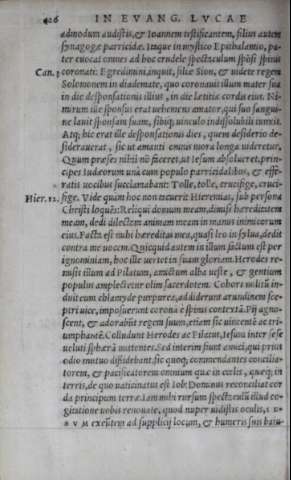 426 IN EVANG. LVCAE
admodum audistis, & Ioannem testificantem, filius autem
synagogæ parricidæ. Itaque in mystico Epithalamio, pa-
ter euocat omnes ad hoc crudele spectaculum sposi spinis
Can. 3 coronati: Egredimini, inquit, filiæ Sion, & uidete regem
Solomonem in diademate, quo coronauit illum mater sua
in die desponsationis illius, & in die lætitiæ cordis eius. Ni-
mirum ille sponsus erat uehemens amator, qui suo sangui-
ne lauit sponsam suam, sibiq; uinculo indissolubili iunxit.
Atq; hic erat ille desponsationis dies, quem desiderio de-
siderauerat, sic ut amanti omnis mora longa uideretur.
Quum præses nihil nō faceret, ut Iesum absolueret, prin-
cipes Iudæorum unà cum populo parricidalibus, & effe-
ratis uocibus succlamabant: Tolle, tolle, crucifige, cruci-
Hier. 12. fige. Vide quam hoc non tacuerit Hieremias, sub persona
Christi loquēs: Reliqui domum meam, dimisi hæreditatem
meam, dedi dilectam animam meam in manus inimicorum
eius. Facta est mihi hæreditas mea, quasi leo in sylua, dedit
contra me uocem. Quicquid autem in illum factum est per
ignominiam, hoc ille uertet in suam gloriam. Herodes re-
misit illum ad Pilatum, amictum alba ueste, & gentium
populus amplectetur olim sacerdotem. Cohors militū in-
duit eum chlamyde purpurea, addiderunt arundinem sce-
ptri uice, imposuerunt corona è spinis contextā. Pij agno-
scent, & adorabūt regem suum, etiam sic uincentē ac tri-
umphantē. Colludunt Herodes ac Pilatus, Iesum inter sese
ueluti sphærā mittentes. Sed interim fiunt amici, qui prius
odio mutuo dissidebant, sic quoq; commendantes concilia-
torem, & pacificatorem omnium quæ in cœlis, quæq; in
terris, de quo uaticinatus est Iob: Dominus reconciliat cor
da principum terræ. Iam mihi rursum spectaculū illud co-
gitatione uobis renouate, quod nuper uidistis oculis, IE-
SVM exeūtem ad supplicij locum, & humeris suis baiu-